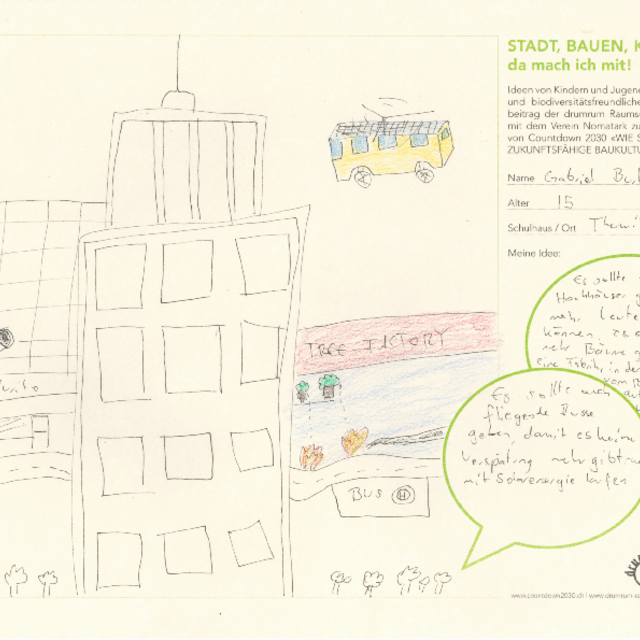 STADT, BAUEN, K
da mach ich mit!
Ideen von Kindern und Jugend
und biodiversitätsfreundliche
beitrag der drumrum Raums
mit dem Verein Nomatark zu
von Countdown 2030 «WIE S
ZUKUNFTSFÄHIGE BAUKULTU
Name Gabriel
Alter 15
Schulhaus / Ort
Meine Idee:
Es sollte
Hochhäuser
mehr Leute
können, es
mehr Bäume
eine Fabrik, in der
Es sollte auch
fliegende Busse
geben, damit es keine
Verspätung mehr gibt
mit Solarenergie laufen
TREE FACTORY
BUS H
www.countdown2030.ch | www.drumrum-ra